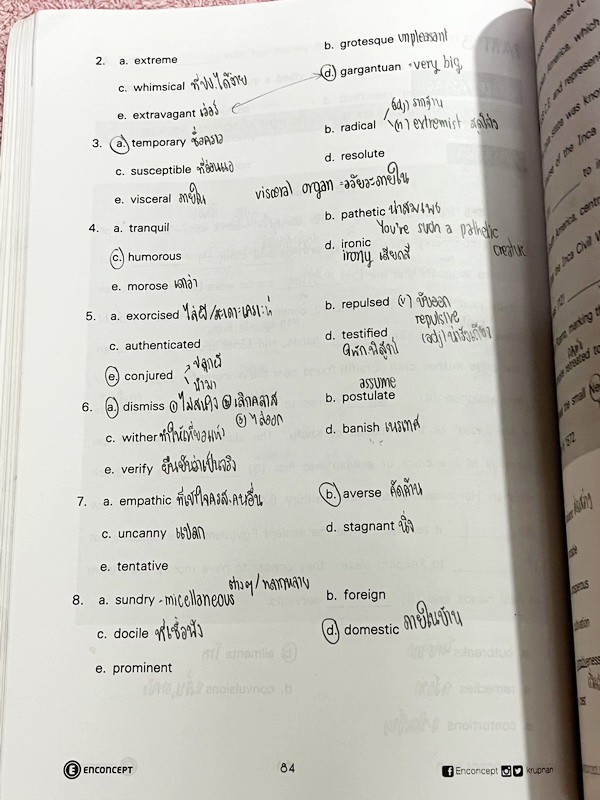 2. a. extreme
b. grotesque unpleasant
c. whimsical ที่ปป.ได้ง่าย
d. gargantuan = very big
e. extravagant เว่อร์
3. a. temporary ชั่วคราว
b. radical (adj) รากฐาน
(n) extremist สุดโต่ง
c. susceptible ที่อ่อนแอ
d. resolute
e. visceral ภายใน visceral organ = อวัยวะภายใน
4. a. tranquil
b. pathetic น่าสมเพช
You're such a pathetic creature
c. humorous
d. ironic
irony เสียดสี
e. morose เศร้า
5. a. exorcised ไล่ผี/สะเดาะเคราะห์
b. repulsed (v) ขับออก
repulsive
(adj) น่ารังเกียจ
c. authenticated
d. testified
ให้การ พิสูจน์
e. conjured ปลุกผี
นำมา
6. a. dismiss ① ไม่สนใจ ② เลิกคลาส
③ ไล่ออก
assume
b. postulate
c. wither ทำให้เหี่ยวแห้ง
d. banish เนรเทศ
e. verify ยืนยันว่าเป็นจริง
7. a. empathic ที่เข้าใจครส.คนอื่น
b. averse คัดค้าน
c. uncanny แปลก
d. stagnant นิ่ง
e. tentative
8. a. sundry - micellaneous ต่างๆ/หลากหลาย
b. foreign
c. docile ที่เชื่อฟัง
d. domestic ภายในบ้าน
e. prominent
ENCONCEPT
84
Enconcept krupnan